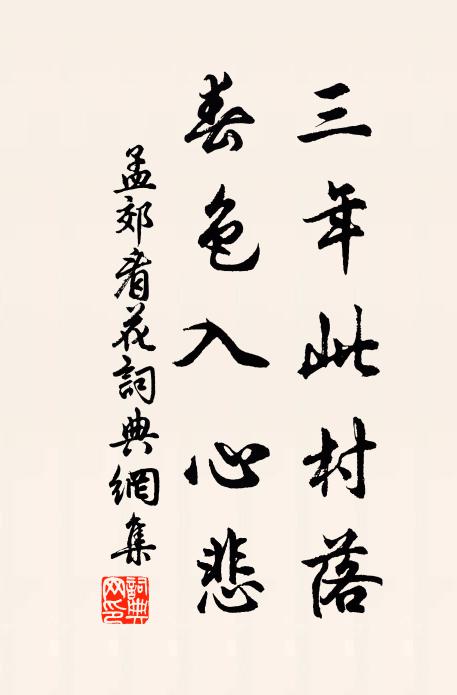 三年此村落
春色入心悲
孟郊看花詞典網集
詞典网印